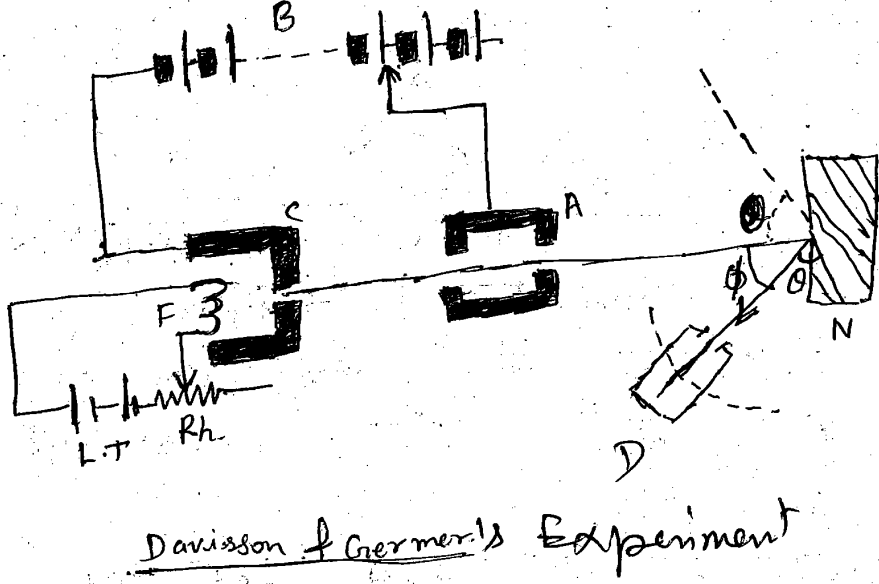 B
C
A
θ
F
ϕ
θ
N
L.T
Rh.
D
Davisson & Germer.'s Experiment